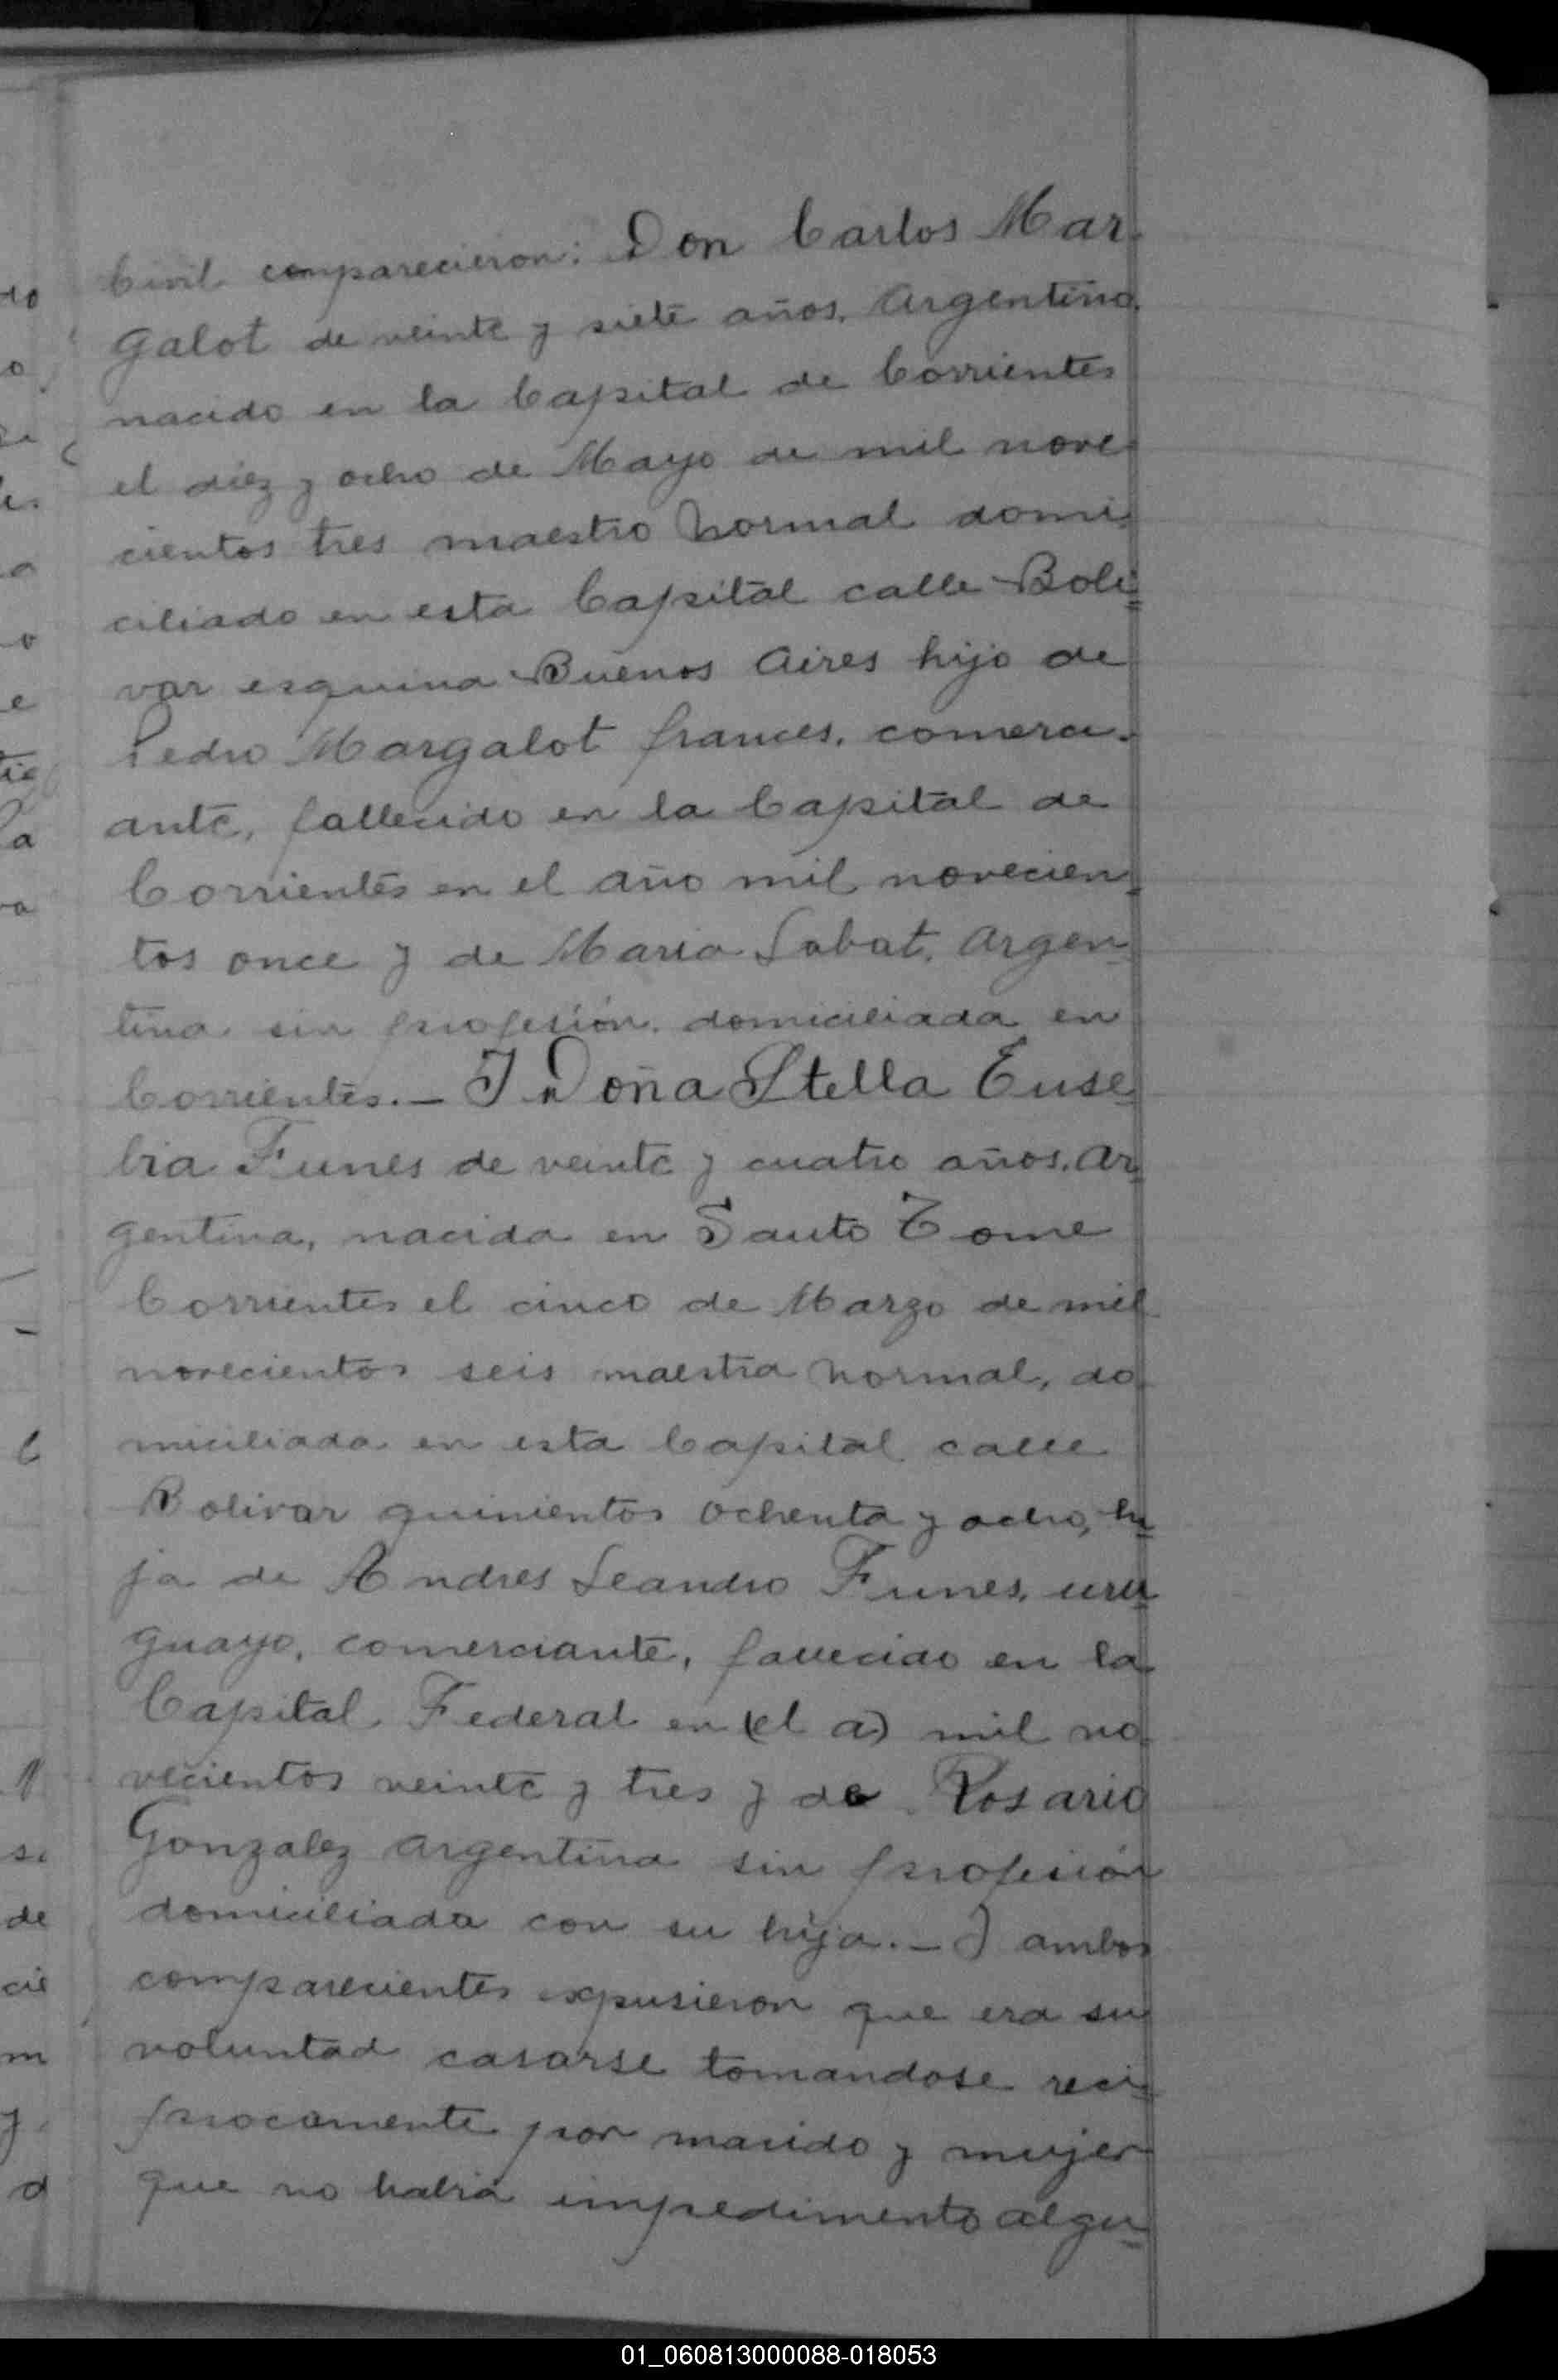 Civil comparecieron: Don Carlos Mar-
galot de veinte y siete años, Argentino,
nacido en la Capital de Corrientes
el diez y ocho de Mayo de mil nove-
cientos tres maestro Normal domi-
ciliado en esta Capital calle Boli=
var esquina Buenos Aires hijo de
Pedro Margalot frances, comerci-
ante, fallecido en la Capital de
Corrientes en el año mil novecien-
tos once y de Maria Sabat, Argen-
tina sin profesión, domiciliada en
Corrientes.— Y Doña Stella Euse-
bia Funes de veinte y cuatro años, Ar-
gentina, nacida en Santo Tome
Corrientes el cinco de Marzo de mil
novecientos seis maestra Normal, do-
miciliada en esta Capital calle
Bolivar quinientos ochenta y ocho, hi-
ja de Andres Leandro Funes, uru-
guayo, comerciante, fallecido en la
Capital Federal en (el a) mil no-
vecientos veinte y tres y de Rosario
Gonzalez argentina sin profesión
domiciliada con su hija.— Y ambos
comparecientes expusieron que era su
voluntad casarse tomandose reci-
procamente por marido y mujer
que no habia impedimento algu-
01_060813000088-018053